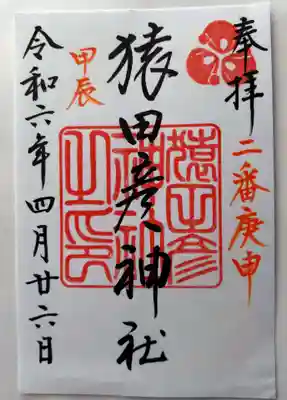 奉拝
二番庚申
猿田彦神社
猿田彦神社之印
甲辰
令和六年四月廿六日